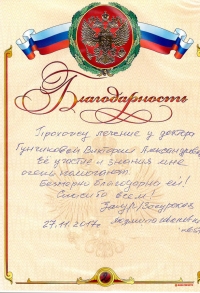 Благодарность
Прохожу лечение у доктора
Гунчиковой Виктории Александровны
Её участие и знания мне
очень помогают
Безмерно благодарна ей!
Спасибо всем!
27.11.2017г.